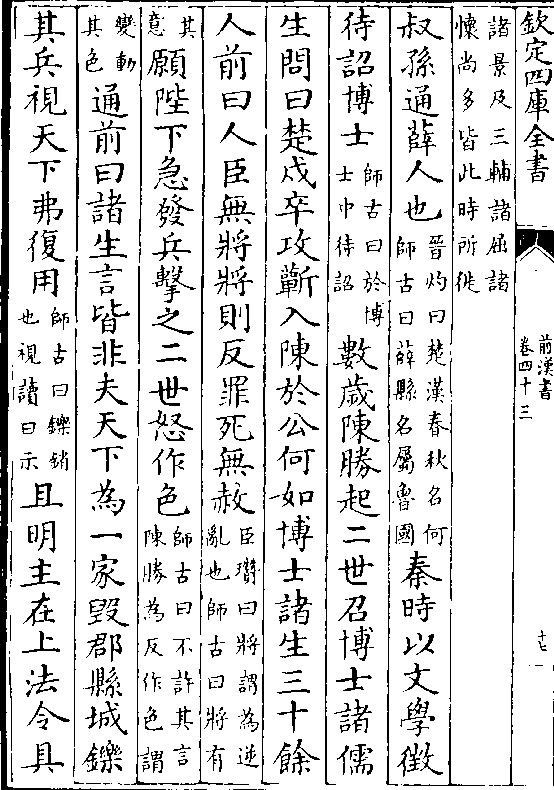 欽定四庫全書
前漢書
卷四十三
十七
諸景及三輔諸屈諸
懷尚多皆此時所徙
叔孫通薛人也晉灼曰楚漢春秋名何師古曰薛縣名屬魯國秦時以文學徵
待詔博士師古曰於博士中待詔數歲陳勝起二世召博士諸儒
生問曰楚戍卒攻蘄入陳於公何如博士諸生三十餘
人前曰人臣無將將則反罪死無赦臣瓚曰將謂為逆亂也師古曰將有
其意願陛下急發兵擊之二世怒作色師古曰不許其言陳勝為反作色謂
變動其色通前曰諸生言皆非夫天下為一家毀郡縣城鑠
其兵視天下弗復用師古曰鑠銷也視讀曰示且明主在上法令具